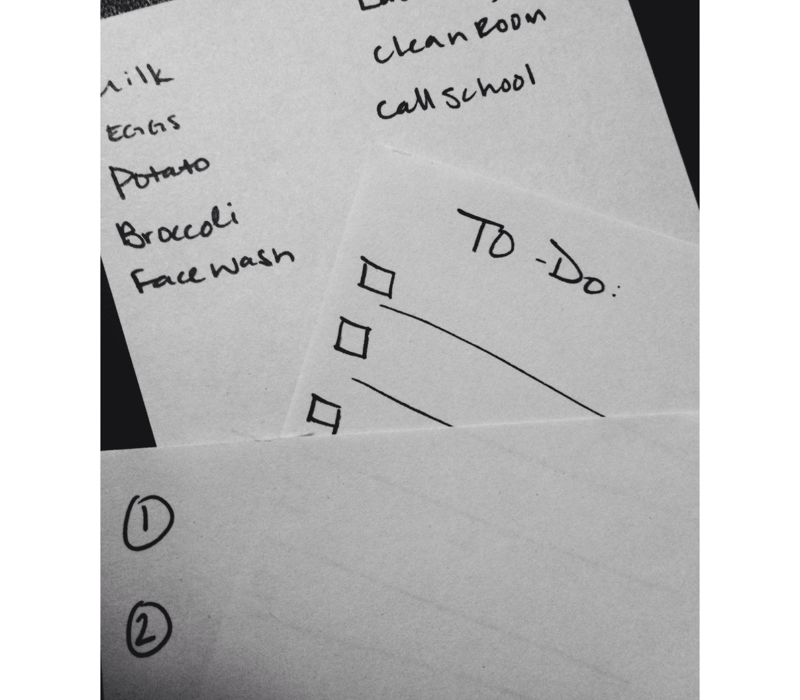 Milk
EGGS
Potato
Broccoli
Face Wash
Clean Room
Call School
TO-DO:
1
2